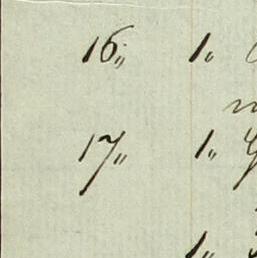 16„ 1„
17„ 1„
1„